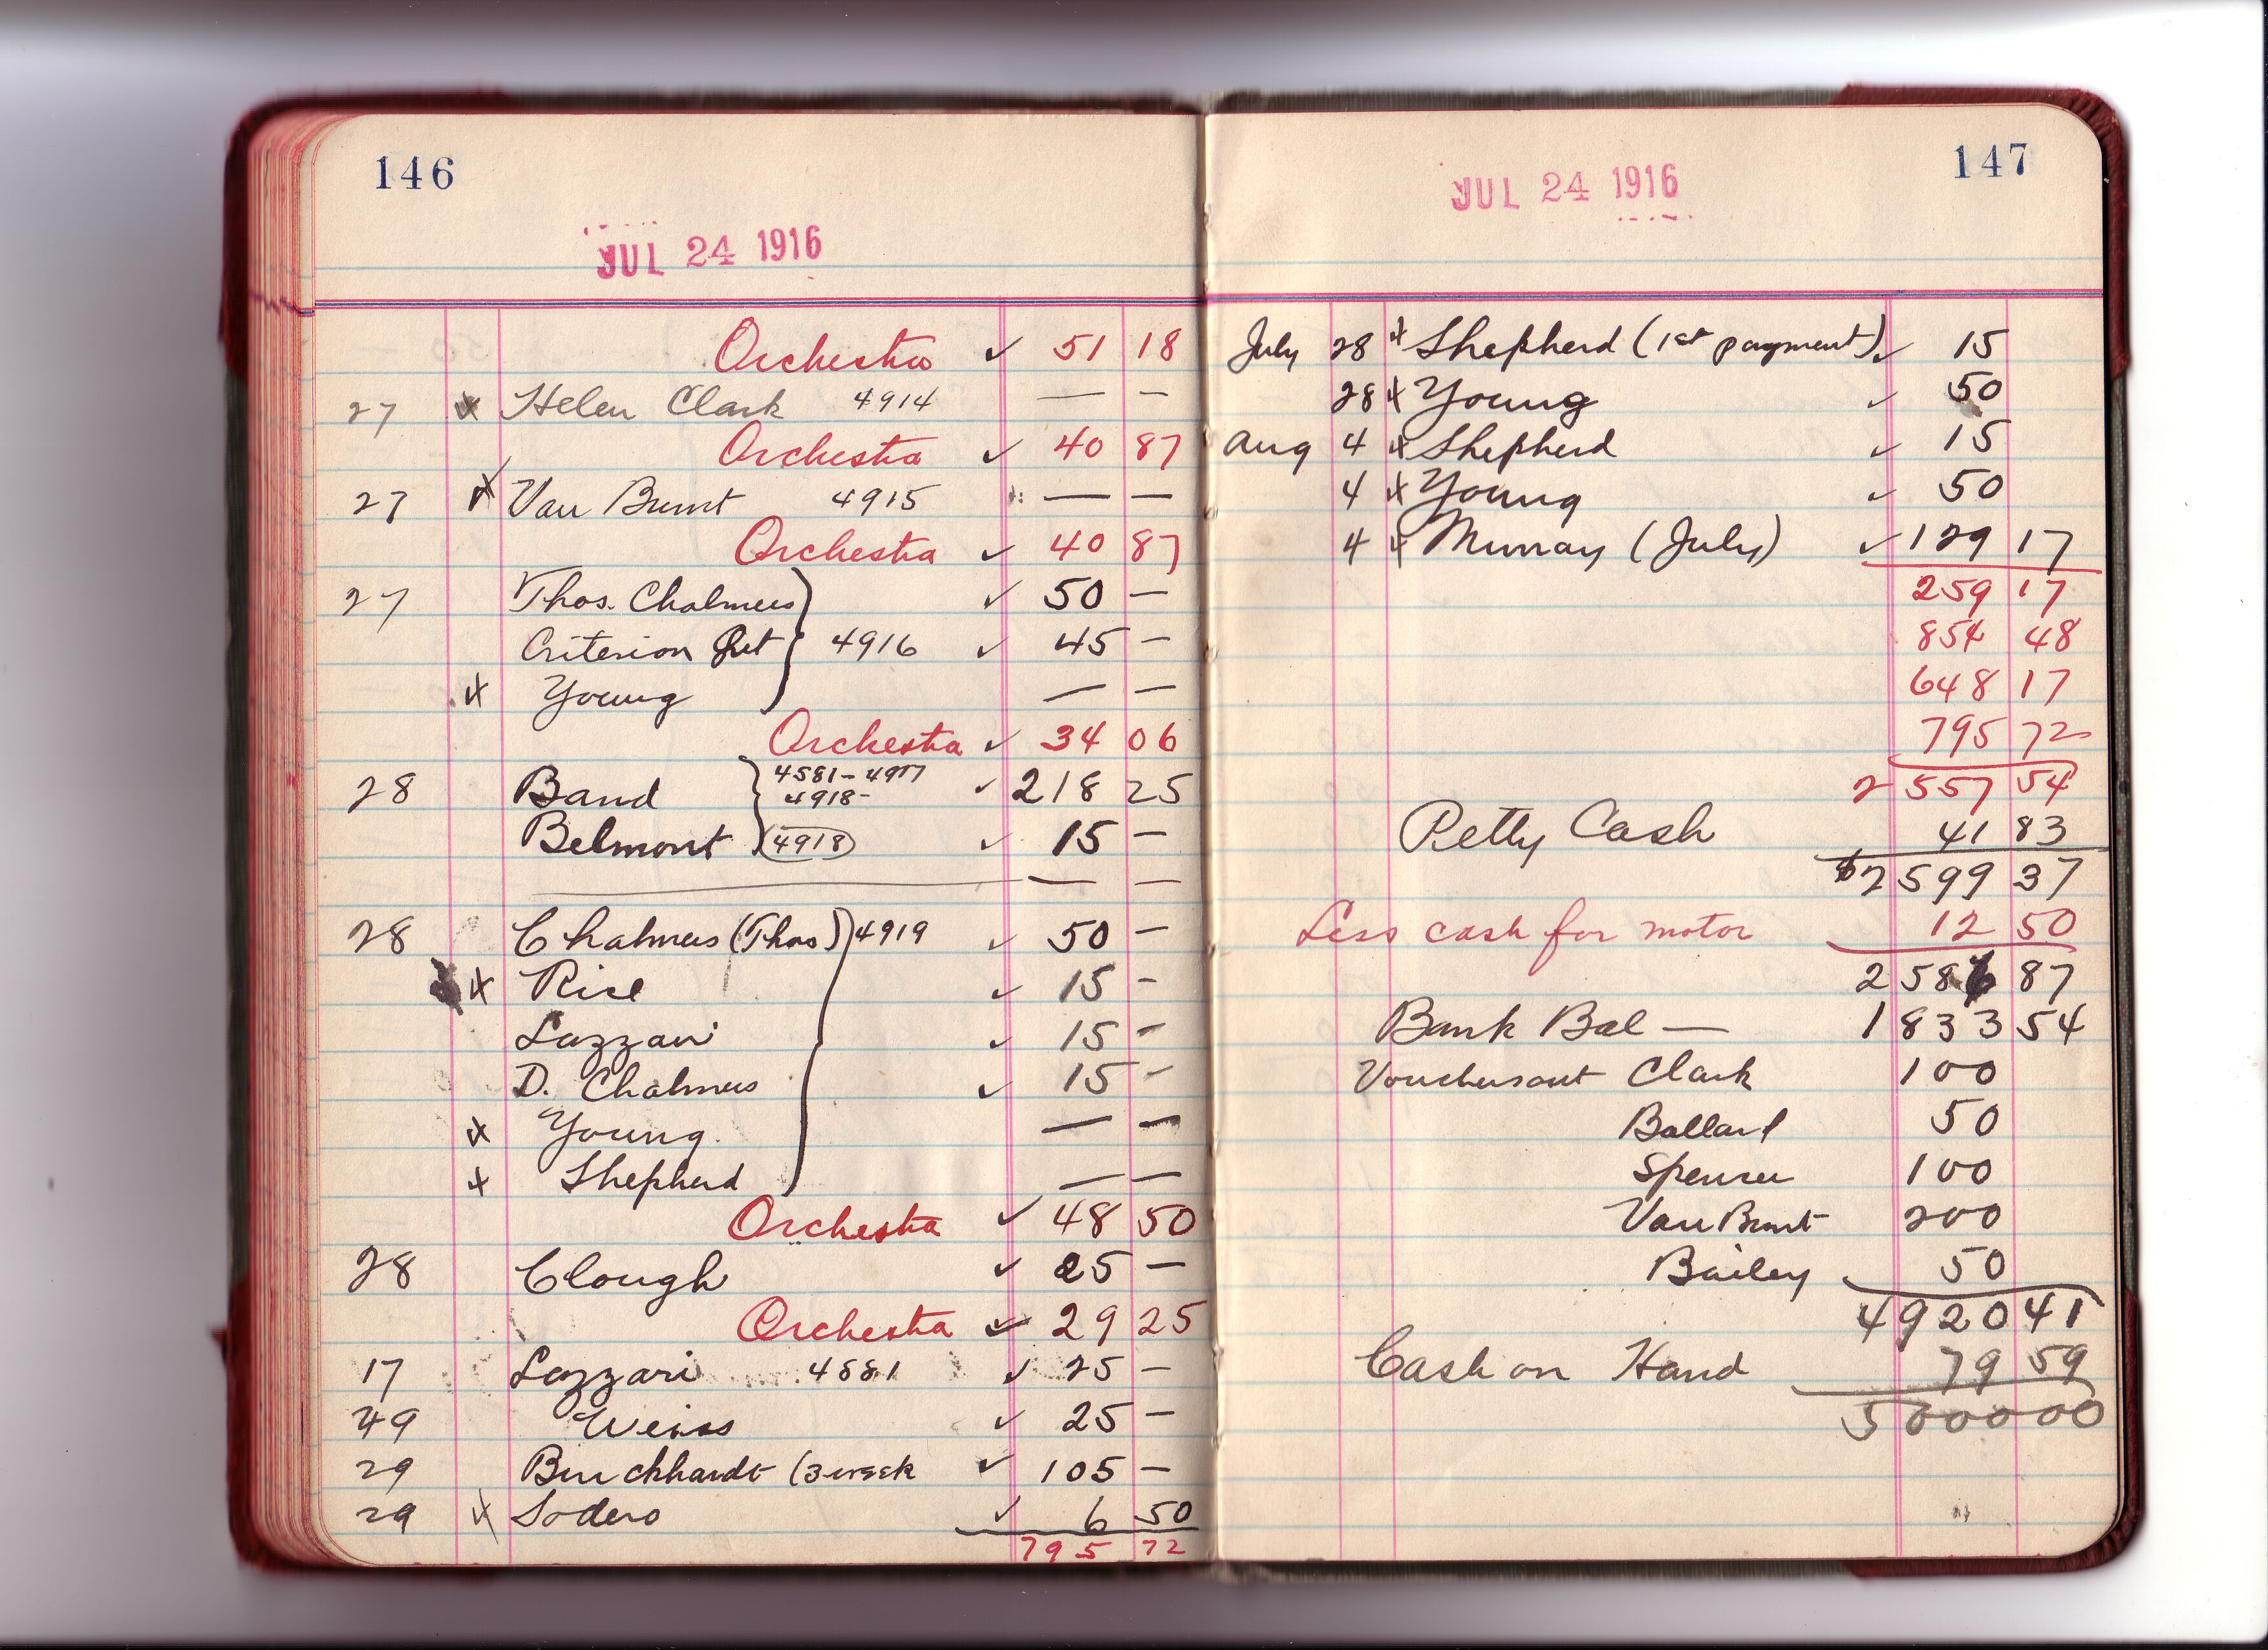 146
JUL 24 1916
Orchestra ✓ 51 18
27 x Helen Clark 4914 — —
Orchestra ✓ 40 87
27 x Van Brunt 4915 — —
Orchestra ✓ 40 87
27 Thos. Chalmers ✓ 50 —
Criterion Qrt } 4916 ✓ 45 —
x Young — —
Orchestra ✓ 34 06
28 Band } 4581 - 4917 ✓ 218 25
4918 -
Belmont (4918) ✓ 15 —
— —
28 Chalmers (Thos) 4919 ✓ 50 —
x Rice ✓ 15 —
Lazzari ✓ 15 —
D. Chalmers ✓ 15 —
x Young — —
x Shepherd — —
Orchestra ✓ 48 50
28 Clough ✓ 25 —
Orchestra ✓ 29 25
17 Lazzari 4881 ✓ 25 —
29 Weiss ✓ 25 —
29 Burckhardt (3 week ✓ 105 —
29 x Sodero ✓ 6 50
795 72
147
JUL 24 1916
July 28 x Shepherd (1st payment) ✓ 15
28 x Young ✓ 50
Aug 4 x Shepherd ✓ 15
4 x Young ✓ 50
4 x Murray (July) ✓ 129 17
259 17
854 48
648 17
795 72
2 557 54
Petty Cash 41 83
$2 599 37
Less cash for motor 12 50
2 586 87
Bank Bal — 1 833 54
Vouchers out Clark 100
Ballard 50
Spencer 100
Van Brunt 200
Bailey 50
4920 41
Cash on Hand 79 59
5000 00